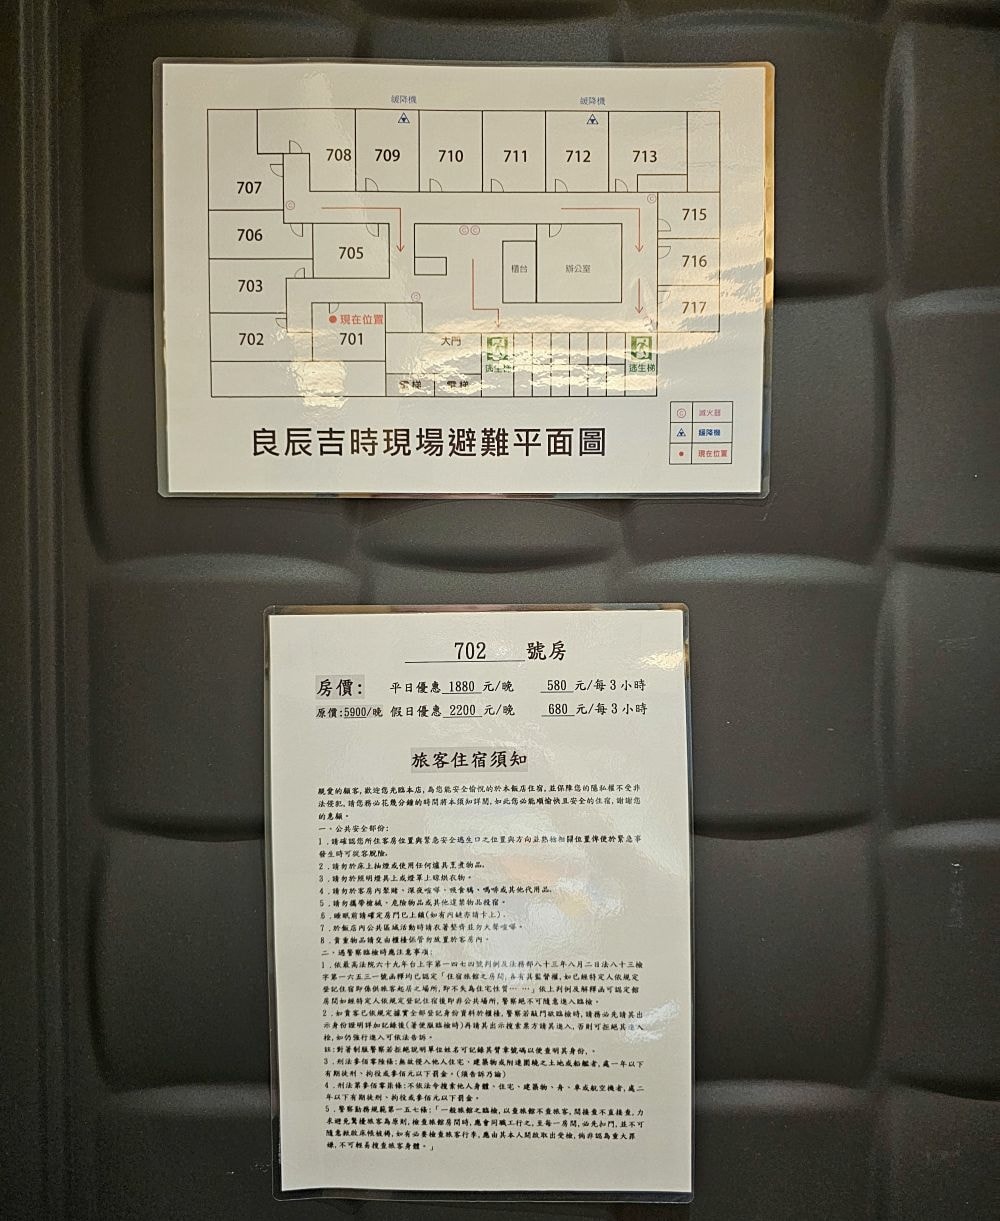 緩降機 緩降機
708 709 710 711 712 713
707
706
705
703
702
701
715
716
717
櫃台 辦公室
現在位置
大門
逃生梯 逃生梯
電梯 電梯
良辰吉時現場避難平面圖
滅火器
緩降機
現在位置
702 號房
房價: 平日優惠 1880 元/晚 580 元/每3小時
原價:5900/晚 假日優惠 2200 元/晚 680 元/每3小時
旅客住宿須知
親愛的顧客,歡迎您光臨本店,為您能安全愉悅的於本飯店住宿,並保障您的隱私權不受非
法侵犯,請您務必花幾分鐘的時間將本須知詳閱,如此您必能順愉快且安全的住宿,謝謝您
的惠顧。
一、公共安全部份:
1.請確認您所住客房位置與緊急安全逃生口之位置與方向並熟稔相關位置俾便於緊急事
發生時可從容脫險。
2.請勿於床上抽煙或使用任何爐具烹煮物品。
3.請勿於照明燈具上或燈罩上晾烘衣物。
4.請勿於客房內聚賭、深夜喧嘩、吸食鴉、嗎啡或其他代用品。
5.請勿攜帶槍械、危險物品或其他違禁物品投宿。
6.睡眠前請確定房門已上鎖(如有內鏈亦請卡上)。
7.於飯店內公共區域活動時請衣著整齊並勿大聲喧嘩。
8.貴重物品請交由櫃檯保管勿放置於客房內。
二、遇警察臨檢時應注意事項:
1.依最高法院六十九年台上字第一四七四號判例及法務部八十三年八月二日法八十三檢
字第一六五三一號函釋均已認定「住宿旅館之房間,各有其監督權,如已經特定人依規定
登記住宿即係供旅客起居之場所,即不失為住宅性質……」依上判例及解釋函可認定館
房間如經特定人依規定登記住宿後即非公共場所,警察絕不可隨意進入臨檢。
2.如貴客已依規定據實全部登記身份資料於櫃檯,警察若敲門欲臨檢時,請務必先請其出
示身份證明詳加記錄後(著便服臨檢時)再請其出示搜索票方請其進入,否則可拒絕其進入
檢,如仍強行進入可依法告訴。
註:對著制服警察若拒絕說明單位姓名可記錄其臂章號碼以便查明其身份,。
3.刑法參佰零陸條:無故侵入他人住宅、建築物或附連圍繞之土地或船艦者,處一年以下
有期徒刑、拘役或參佰元以下罰金。(須告訴乃論)
4.刑法第參佰零柒條:不依法令搜索他人身體、住宅、建築物、舟、車或航空機者,處二
年以下有期徒刑、拘役或參佰元以下罰金。
5.警察勤務規範第一五七條:「一般旅館之臨檢,以查旅館不查旅客,間接查不直接查,力
求避免驚擾旅客為原則,檢查旅館房間時,應會同職工行之,至每一房間,必先扣門,並不可
隨意掀啟床帳被褥,如有必要檢查旅客行李,應由其本人開啟取出受檢,倘非認為重大罪
嫌,不可輕易搜查旅客身體。」